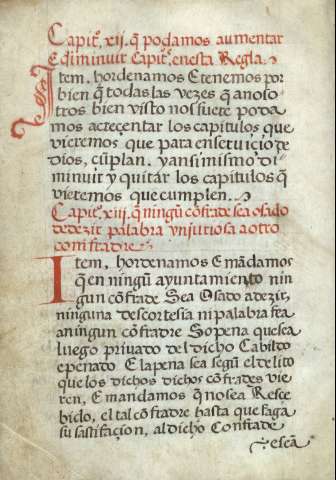 Capit.º .xij. q̃ podamos aumentar
E diminuir Capit.ºˢ enesta Regla
Item. hordenamos E tenemos por
bien q̃ todas las vezes q̃ anoso
tros bien visto nos fuere poda
mos acreçentar los capitulos que
vieremos que para enseruiçio de
dios, cũplan. yansimismo di
minuir y quitar los capitulos q̃
vieremos que cumplen.
Capit.º .xiij. que ningũ cõfrade sea osado
de dezir palabra ynjuriosa a otro
comfradre
Item, hordenamos E mãdamos
q̃ en ningũ ayuntamiento nin
gun cõfrade Sea Osado adezir,
ninguna descortesia ni palabra fea
an ingun cõfradre So pena que sea
luego privado del dicho Cabildo
epenado E la pena sea segũ el delito
que los dichos dichos cõfrades vie
ren, E mandamos q̃ no sea Resçe
bido, el tal cõfradre hasta que faga
su satisfaçion, al dicho Confrade